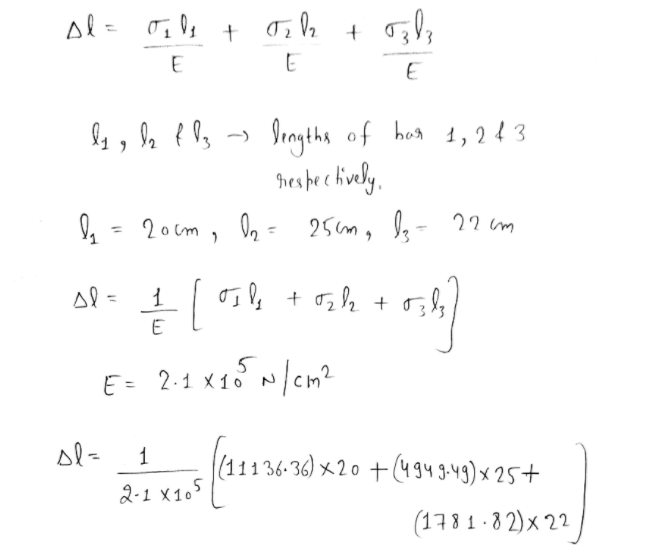 Δl = σ₁l₁/E + σ₂l₂/E + σ₃l₃/E
l₁, l₂ & l₃ → lengths of bar 1, 2 & 3
respectively.
l₁ = 20cm, l₂ = 25cm, l₃ - 22 cm
Δl = 1/E [σ₁l₁ + σ₂l₂ + σ₃l₃]
E = 2.1 × 10⁵ N/cm²
Δl = 1/2.1 × 10⁵ [(11136.36) × 20 + (4949.49) × 25 +
(1781.82) × 22]